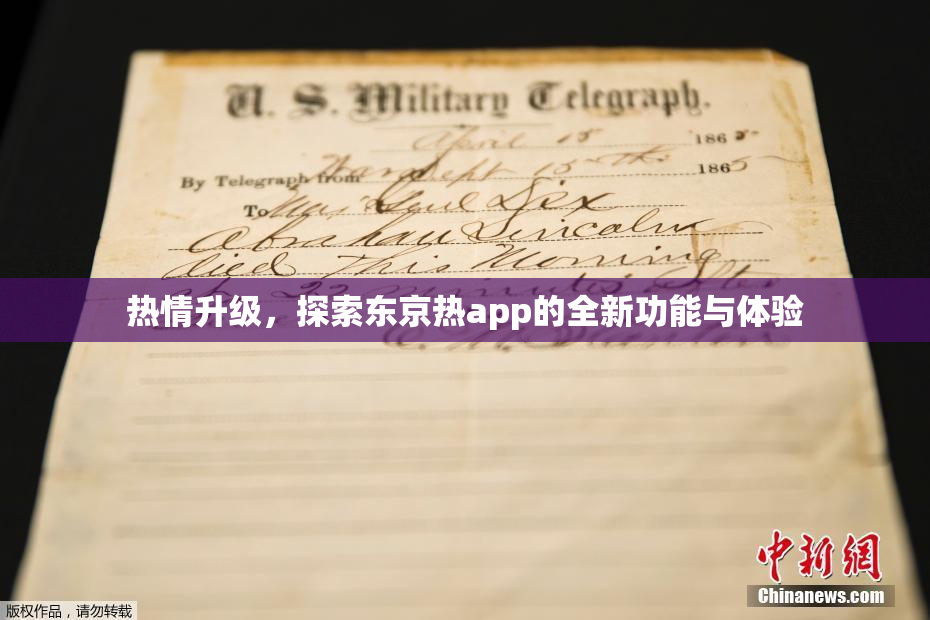 U. S. Military Telegraph.
April 15 1865
By Telegraph from War Dept 15th 1865
To Maj Genl Dix
Abraham Lincoln
died This Morning
at 22 minutes after
热情升级，探索东京热app的全新功能与体验
E. M. Stanton
中新网
Chinanews.com
版权作品，请勿转载